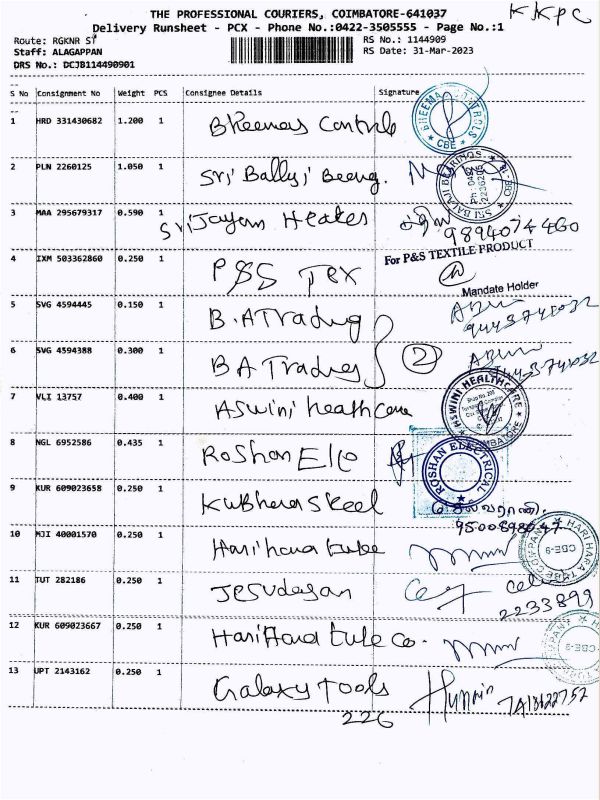 KKPC
THE PROFESSIONAL COURIERS, COIMBATORE-641037
Delivery Runsheet - PCX - Phone No.:0422-3505555 - Page No.:1
Route: RGKNR ST
RS No.: 1144909
Staff: ALAGAPPAN
RS Date: 31-Mar-2023
DRS No.: DCJB114490901
S No Consignment No Weight PCS Consignee Details Signature
1 HRD 331430682 1.200 1 Bheemas Controls
BHEEMA CONTROLS
CBE
2 PLN 2260125 1.050 1 Sri Balaji
SRI BALAJI BEARINGS
CBE
Ph: 0422
2236205
3 MAA 295679317 0.590 1 Sri Jayam Heates
9894074460
4 IXM 503362860 0.250 1 P&S Tex
For P&S TEXTILE PRODUCT
Mandate Holder
5 SVG 4594445 0.150 1 B.A Trading
6 SVG 4594388 0.300 1 B A Tradings
2
7 VLI 13757 0.400 1 Aswini heathcare
ASWINI HEALTHCARE
COIMBATORE
8 NGL 6952586 0.435 1 Roshan Ele
ROSHAN ELECTRICAL
9 KUR 609023658 0.250 1 Kubhera Skeel
செல்வராணி.
10 MJI 40001570 0.250 1 Harihara tube
HARI HARA TUBE COMPANY
CBE-9
11 TUT 282186 0.250 1 Jesudasan
2233899
12 KUR 609023667 0.250 1 Hari Hara tube Co.
CBE-9
13 UPT 2143162 0.250 1 Galaxy Tools
226